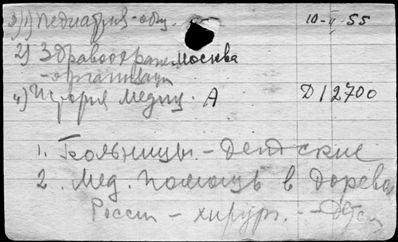 3)1) Педиатрия - общ. 10-II-55
2) Здравоохран. Москва
- организац
4) История Медиц. А Д12700
1. Больницы - Детские
2. Мед. помощь в дорев
России - хирург. -